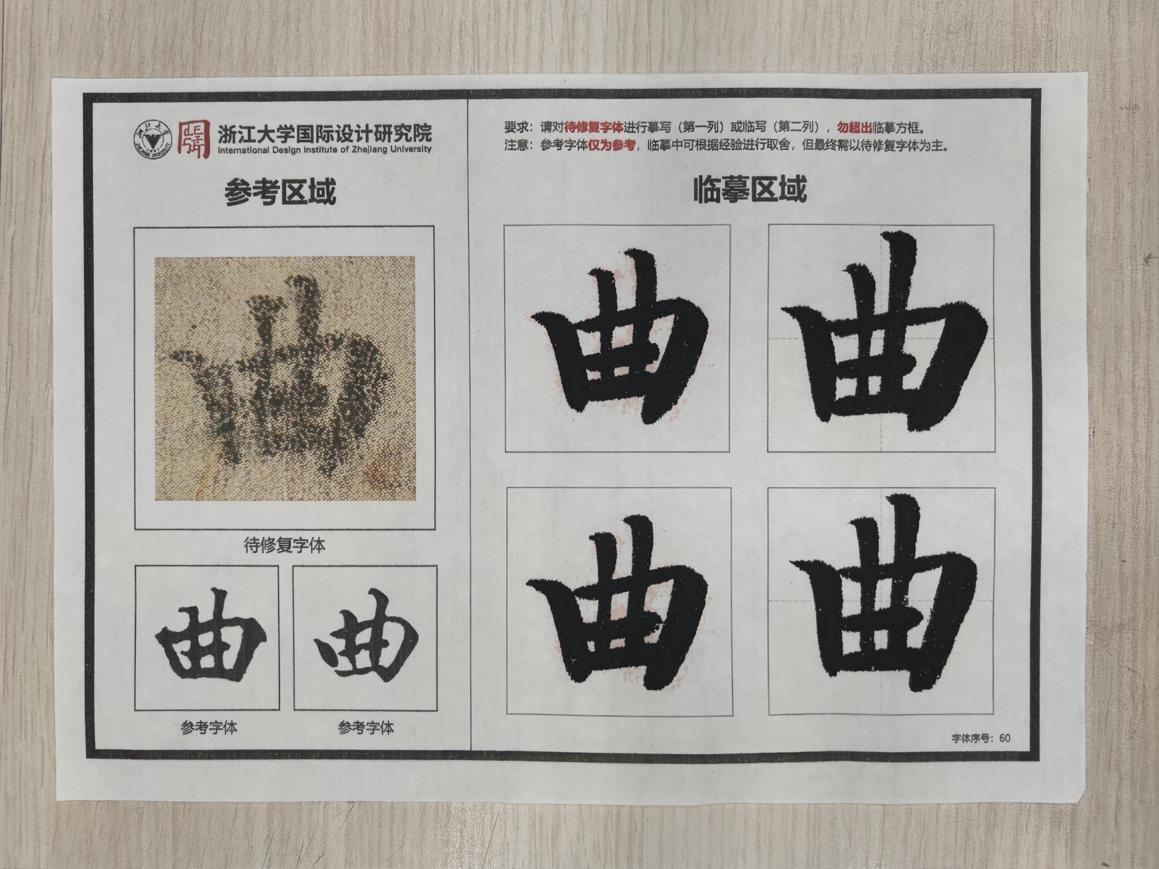 浙江大学国际设计研究院
International Design Institute of Zhejiang University
参考区域
曲
待修复字体
曲 曲
参考字体 参考字体
要求：请对待修复字体进行摹写（第一列）或临写（第二列），勿超出临摹方框。
注意：参考字体仅为参考，临摹中可根据经验进行取舍，但最终需以待修复字体为主。
临摹区域
曲 曲
曲 曲
字体序号：60